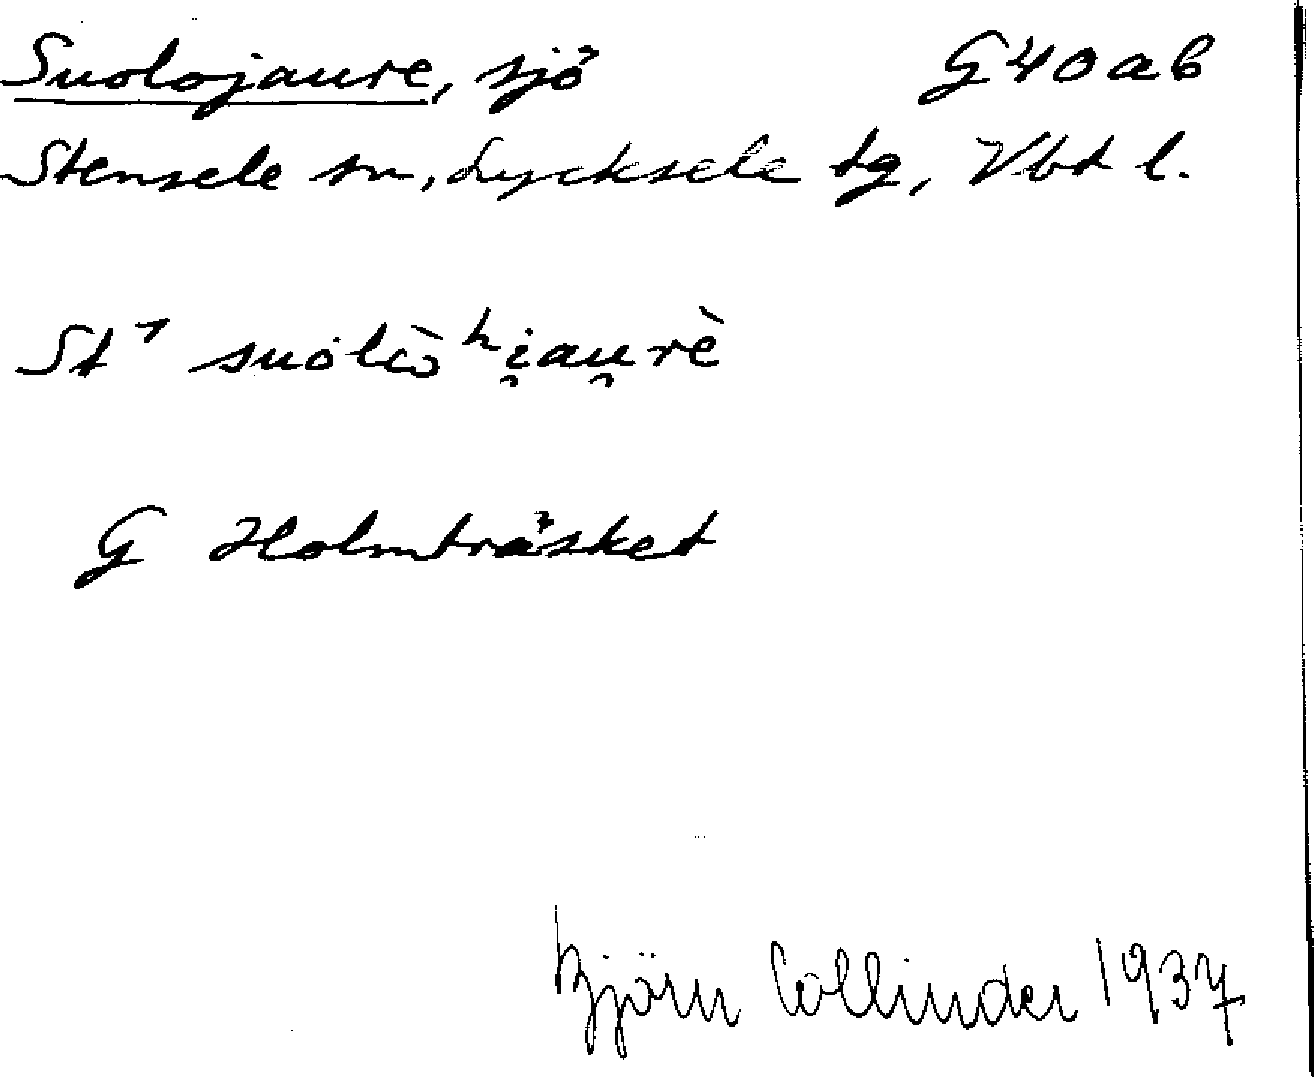 Suolojaure, sjö G40ab
Stensele sn, Lycksele tg, Vbt l.
St¹ suolɷ̀ ʰi̯au̯rè
G Holmträsket
Björn Collinder 1937